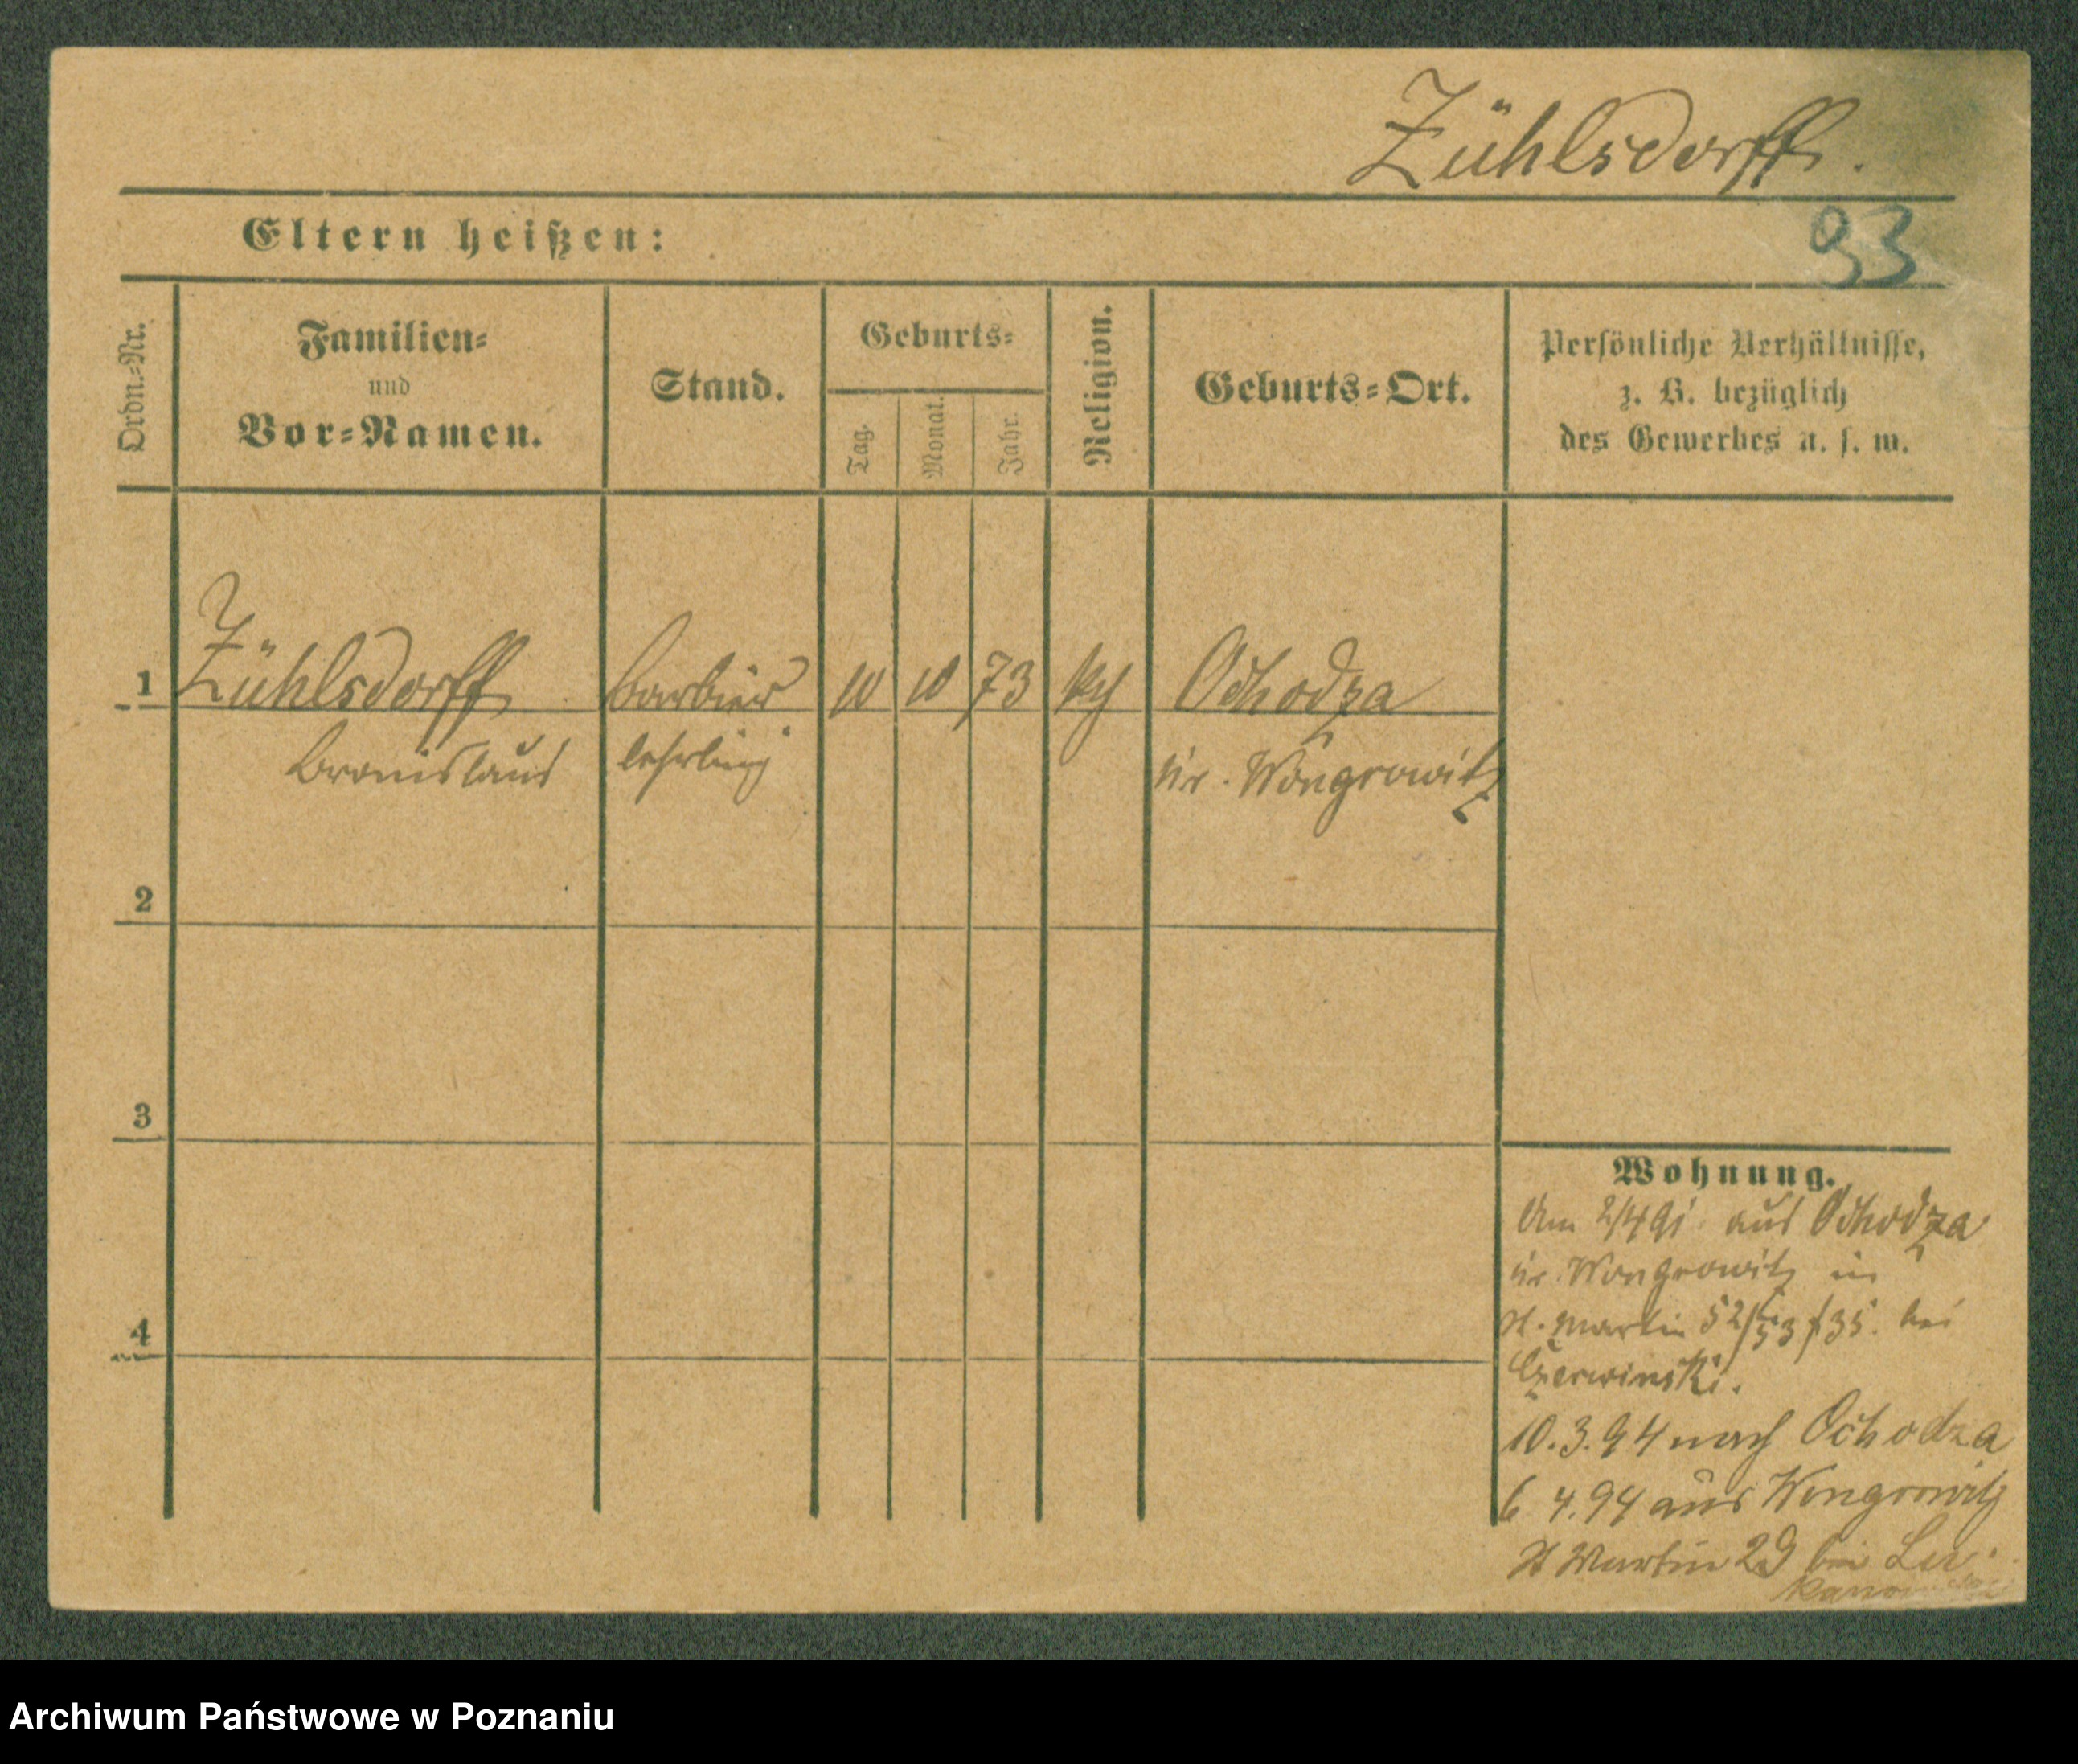 Zühlsdorff.
Eltern heißen:
93
Ordn.-Nr.
Familien-
und
Vor-Namen.
Stand.
Geburts-
Tag.
Monat.
Jahr.
Religion.
Geburts-Ort.
Persönliche Verhältnisse,
z. B. bezüglich
des Gewerbes u. s. w.
1 Zühlsdorff Barbier 10 10 73 Ochodza
Bronislaus lehrling Kr. Wongrowitz
2
3
4
Wohnung.
Am 2/4 91. aus Ochodza
Kr. Wongrowitz in
St. Martin 52/53 f 35. bei
Czerwinski.
10.3.94 nach Ochodza
6. 4.94 aus Wongrowitz
St Martin 29 bei
Archiwum Państwowe w Poznaniu